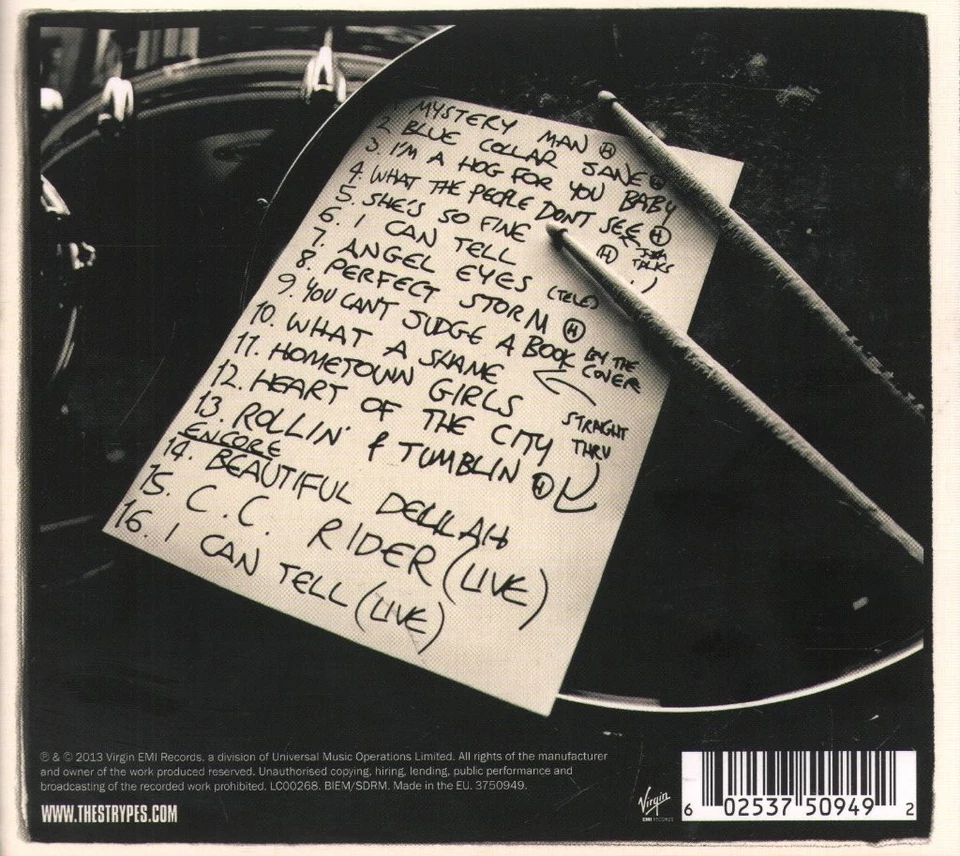 1. MYSTERY MAN Ⓗ
2. BLUE COLLAR JANE Ⓗ
3. I'M A HOG FOR YOU BABY
4. WHAT THE PEOPLE DON'T SEE Ⓗ
JOSH TALKS
5. SHE'S SO FINE Ⓗ
6. I CAN TELL
7. ANGEL EYES (TELE)
8. PERFECT STORM Ⓗ
9. YOU CAN'T JUDGE A BOOK BY THE COVER
10. WHAT A SHAME
STRAIGHT THRU
11. HOMETOWN GIRLS
12. HEART OF THE CITY
13. ROLLIN' & TUMBLIN Ⓗ
ENCORE
14. BEAUTIFUL DELILAH
15. C.C. RIDER (LIVE)
16. I CAN TELL (LIVE)
℗ & © 2013 Virgin EMI Records, a division of Universal Music Operations Limited. All rights of the manufacturer
and owner of the work produced reserved. Unauthorised copying, hiring, lending, public performance and
broadcasting of the recorded work prohibited. LC00268. BIEM/SDRM. Made in the EU. 3750949.
WWW.THESTRYPES.COM
Virgin
EMI RECORDS
6 02537 50949 2